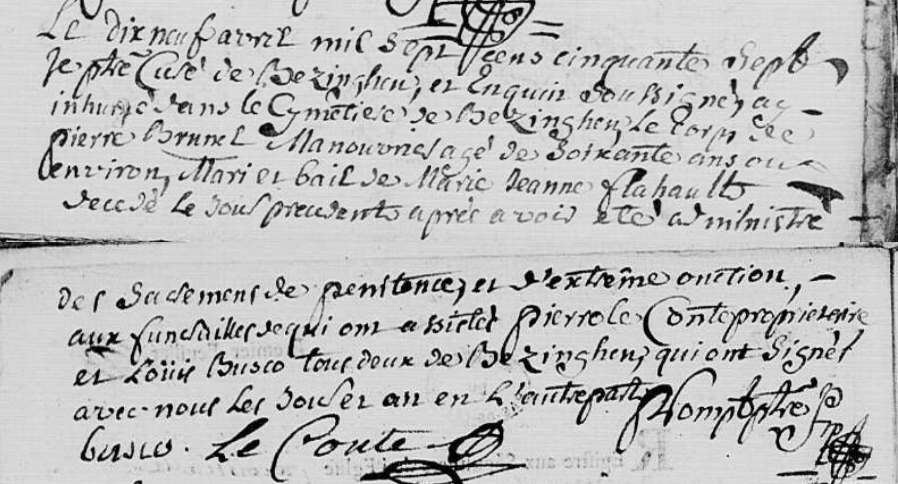 Le dix neuf avril mil sept cens cinquante sept
Je ptre Curé de Bezinghen, et Enquin soussigné, ay
inhumé dans le Cymetiere de Bezinghen, le corps de
pierre Brunel Manouvrier agé de soixante ans ou
environ, Mari et bail de Marie Jeanne flahault
decedé le jour precedent après avoir eté administre
des sacremens de penitence, et d'extrême onction,
aux funerailles de qui ont assistés pierre le Conte proprietaire
et Loüis busco tous deux de Bezinghen, qui ont signés
avec nous les jour et an en l'autre part
busco. Le Conte